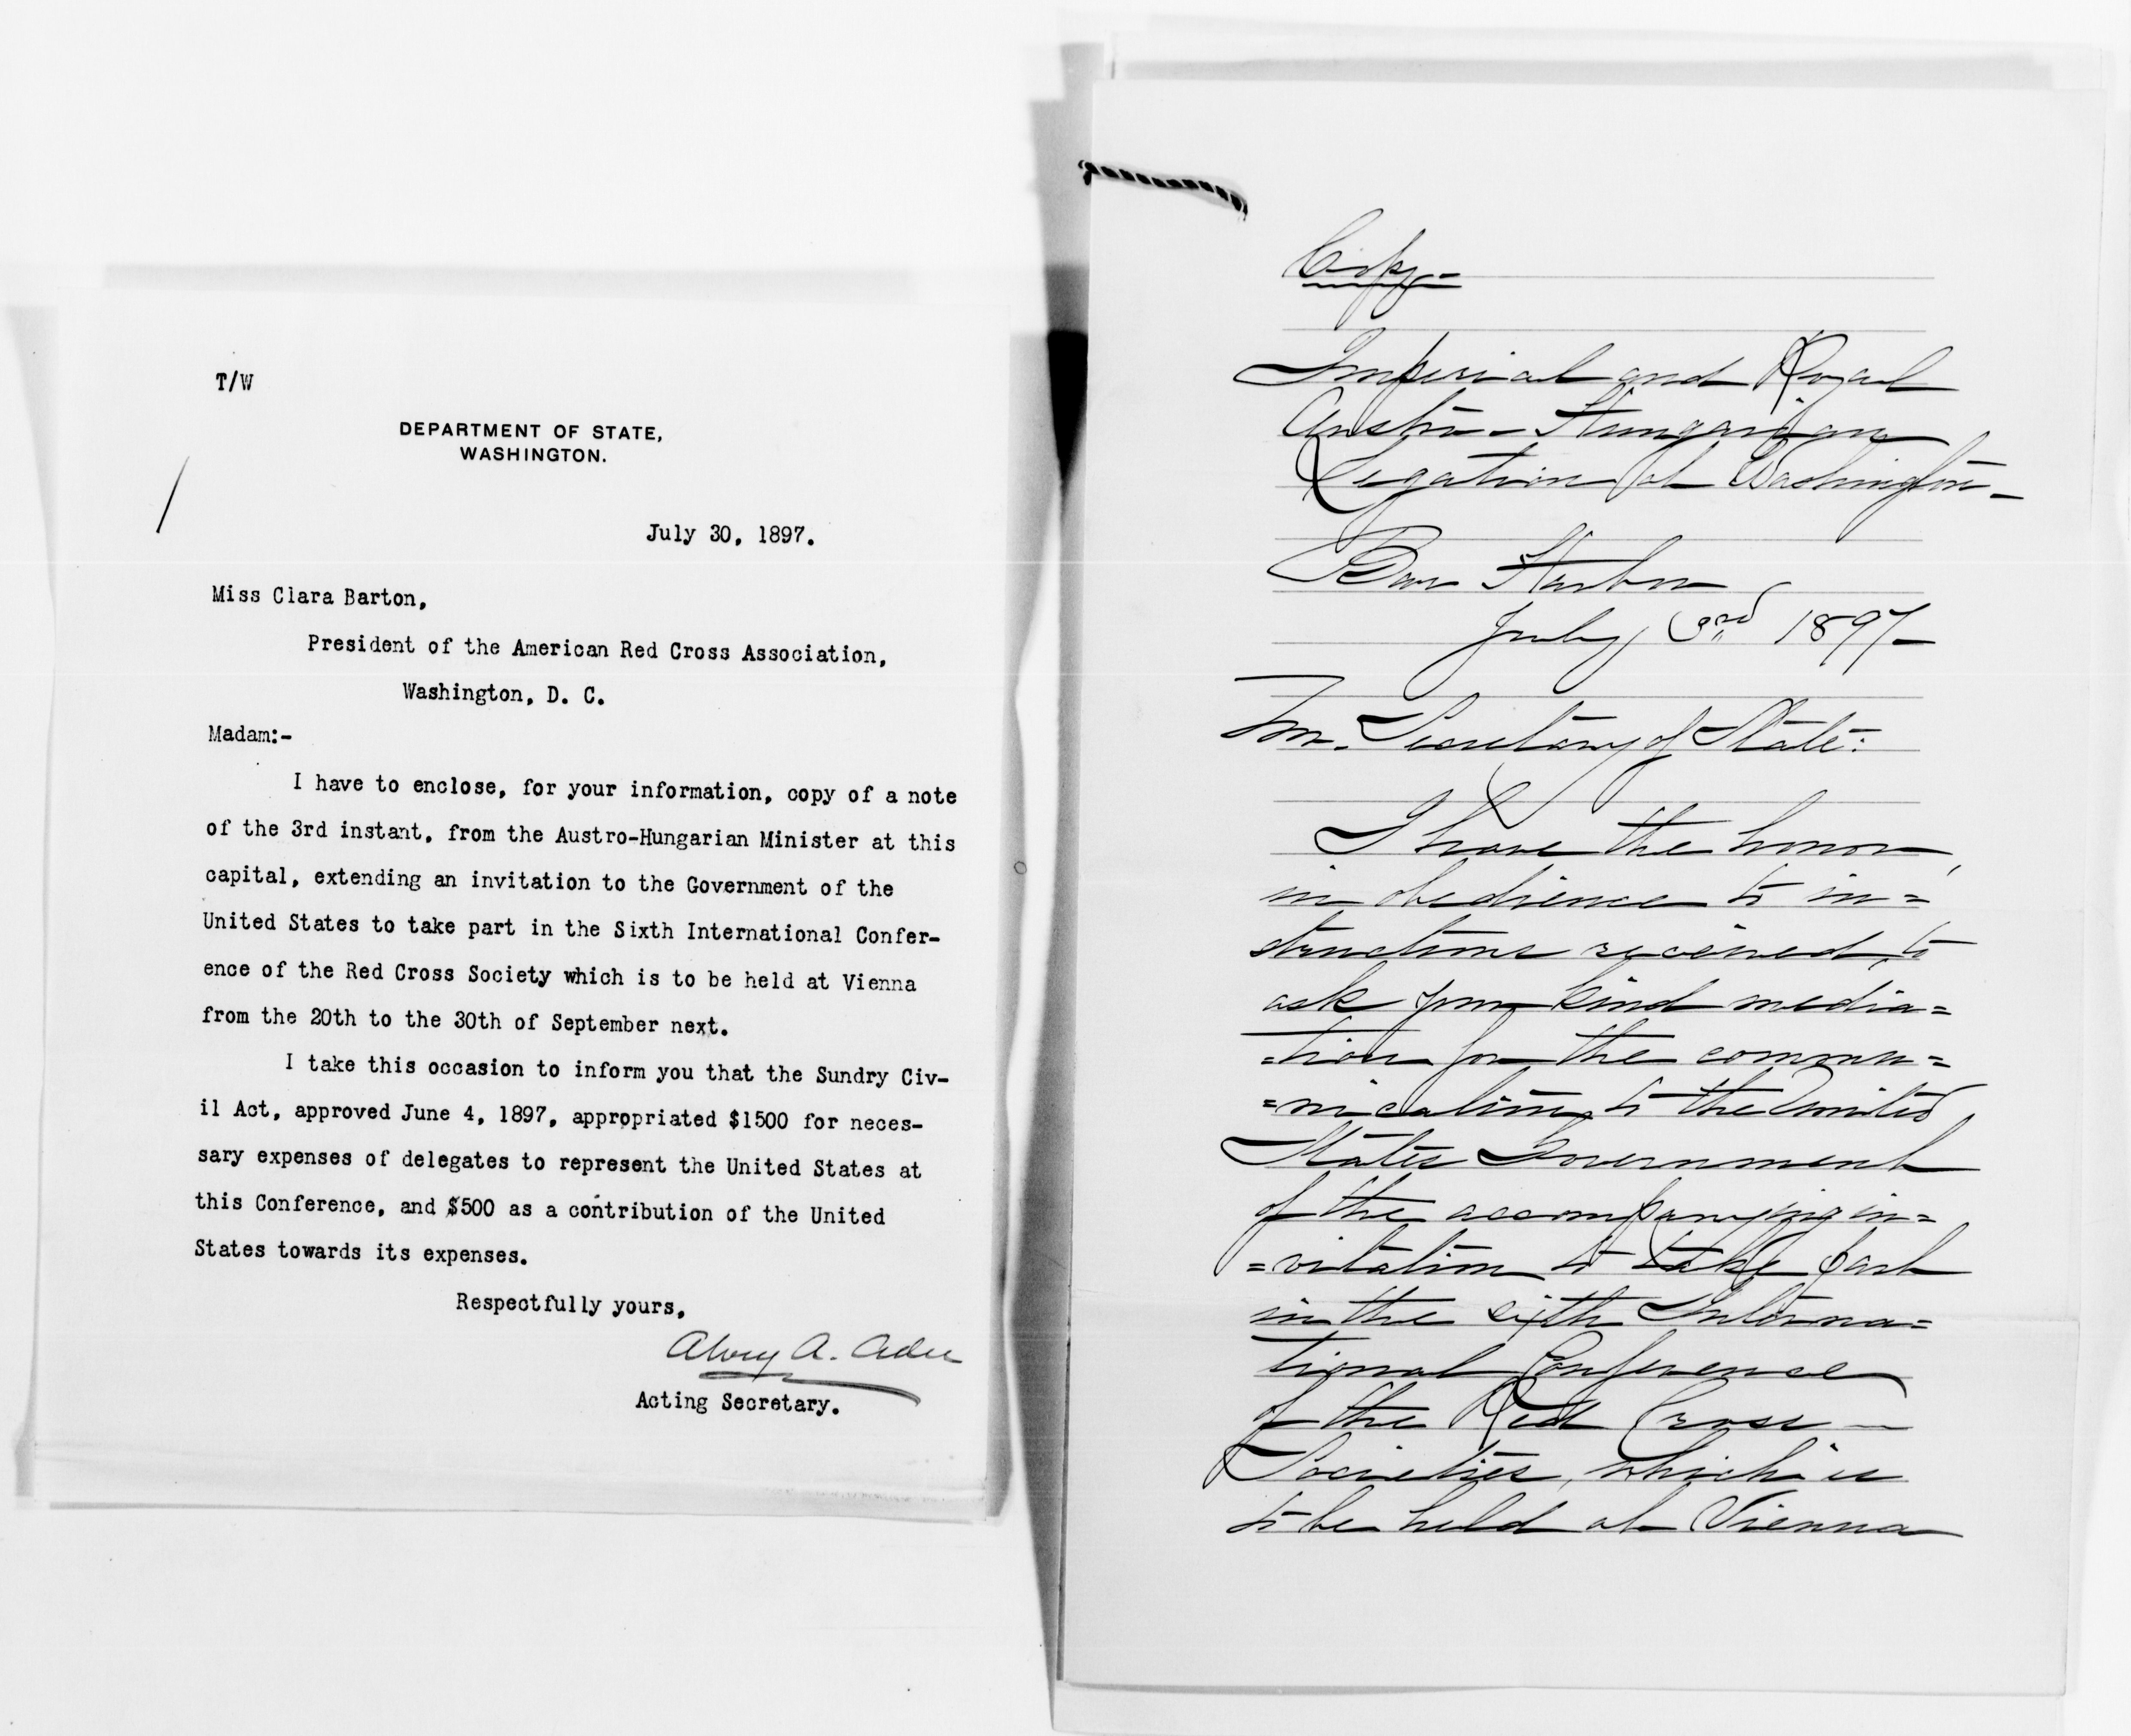 T/W
DEPARTMENT OF STATE,
WASHINGTON.
July 30, 1897.
Miss Clara Barton,
President of the American Red Cross Association,
Washington, D. C.
Madam:-
I have to enclose, for your information, copy of a note
of the 3rd instant, from the Austro-Hungarian Minister at this
capital, extending an invitation to the Government of the
United States to take part in the Sixth International Confer-
ence of the Red Cross Society which is to be held at Vienna
from the 20th to the 30th of September next.
I take this occasion to inform you that the Sundry Civ-
il Act, approved June 4, 1897, appropriated $1500 for neces-
sary expenses of delegates to represent the United States at
this Conference, and $500 as a contribution of the United
States towards its expenses.
Respectfully yours,
Alvey A. Adee
Acting Secretary.
Copy-
Imperial and Royal
Austro-Hungarian
Legation at Washington-
Bar Harbor
July 3rd 1897-
Mr. Secretary of State:
I have the honor,
in obedience to in=
structions received, to
ask your kind media=
=tion for the commu=
=nication to the United
States Government
of the accompanying in=
=vitation to take part
in the sixth Interna=
tional Conference
of the Red Cross
Societies, which is
to be held at Vienna